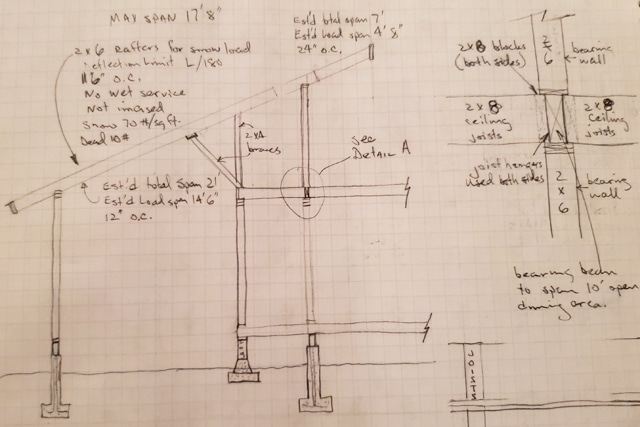 MAX SPAN 17'8"
2x6 Rafters for snow load
Deflection Limit L/180
16" o.c.
No wet service
Not incised
Snow 70 #/sq.ft.
Dead 10#
Est'd total span 7'
Est'd load span 4' 8"
24" o.c.
2x4
braces
see
DETAIL A
Est'd total span 21'
Est'd Load span 14'6"
12" o.c.
2x8 blocks
(both sides)
2
x
6
bearing
wall
2x8
ceiling
joists
2x8
Ceiling
joists
joist hangers
used both sides
2
x
6
bearing
wall
bearing beam
to span 10' open
dining area.
JOISTS